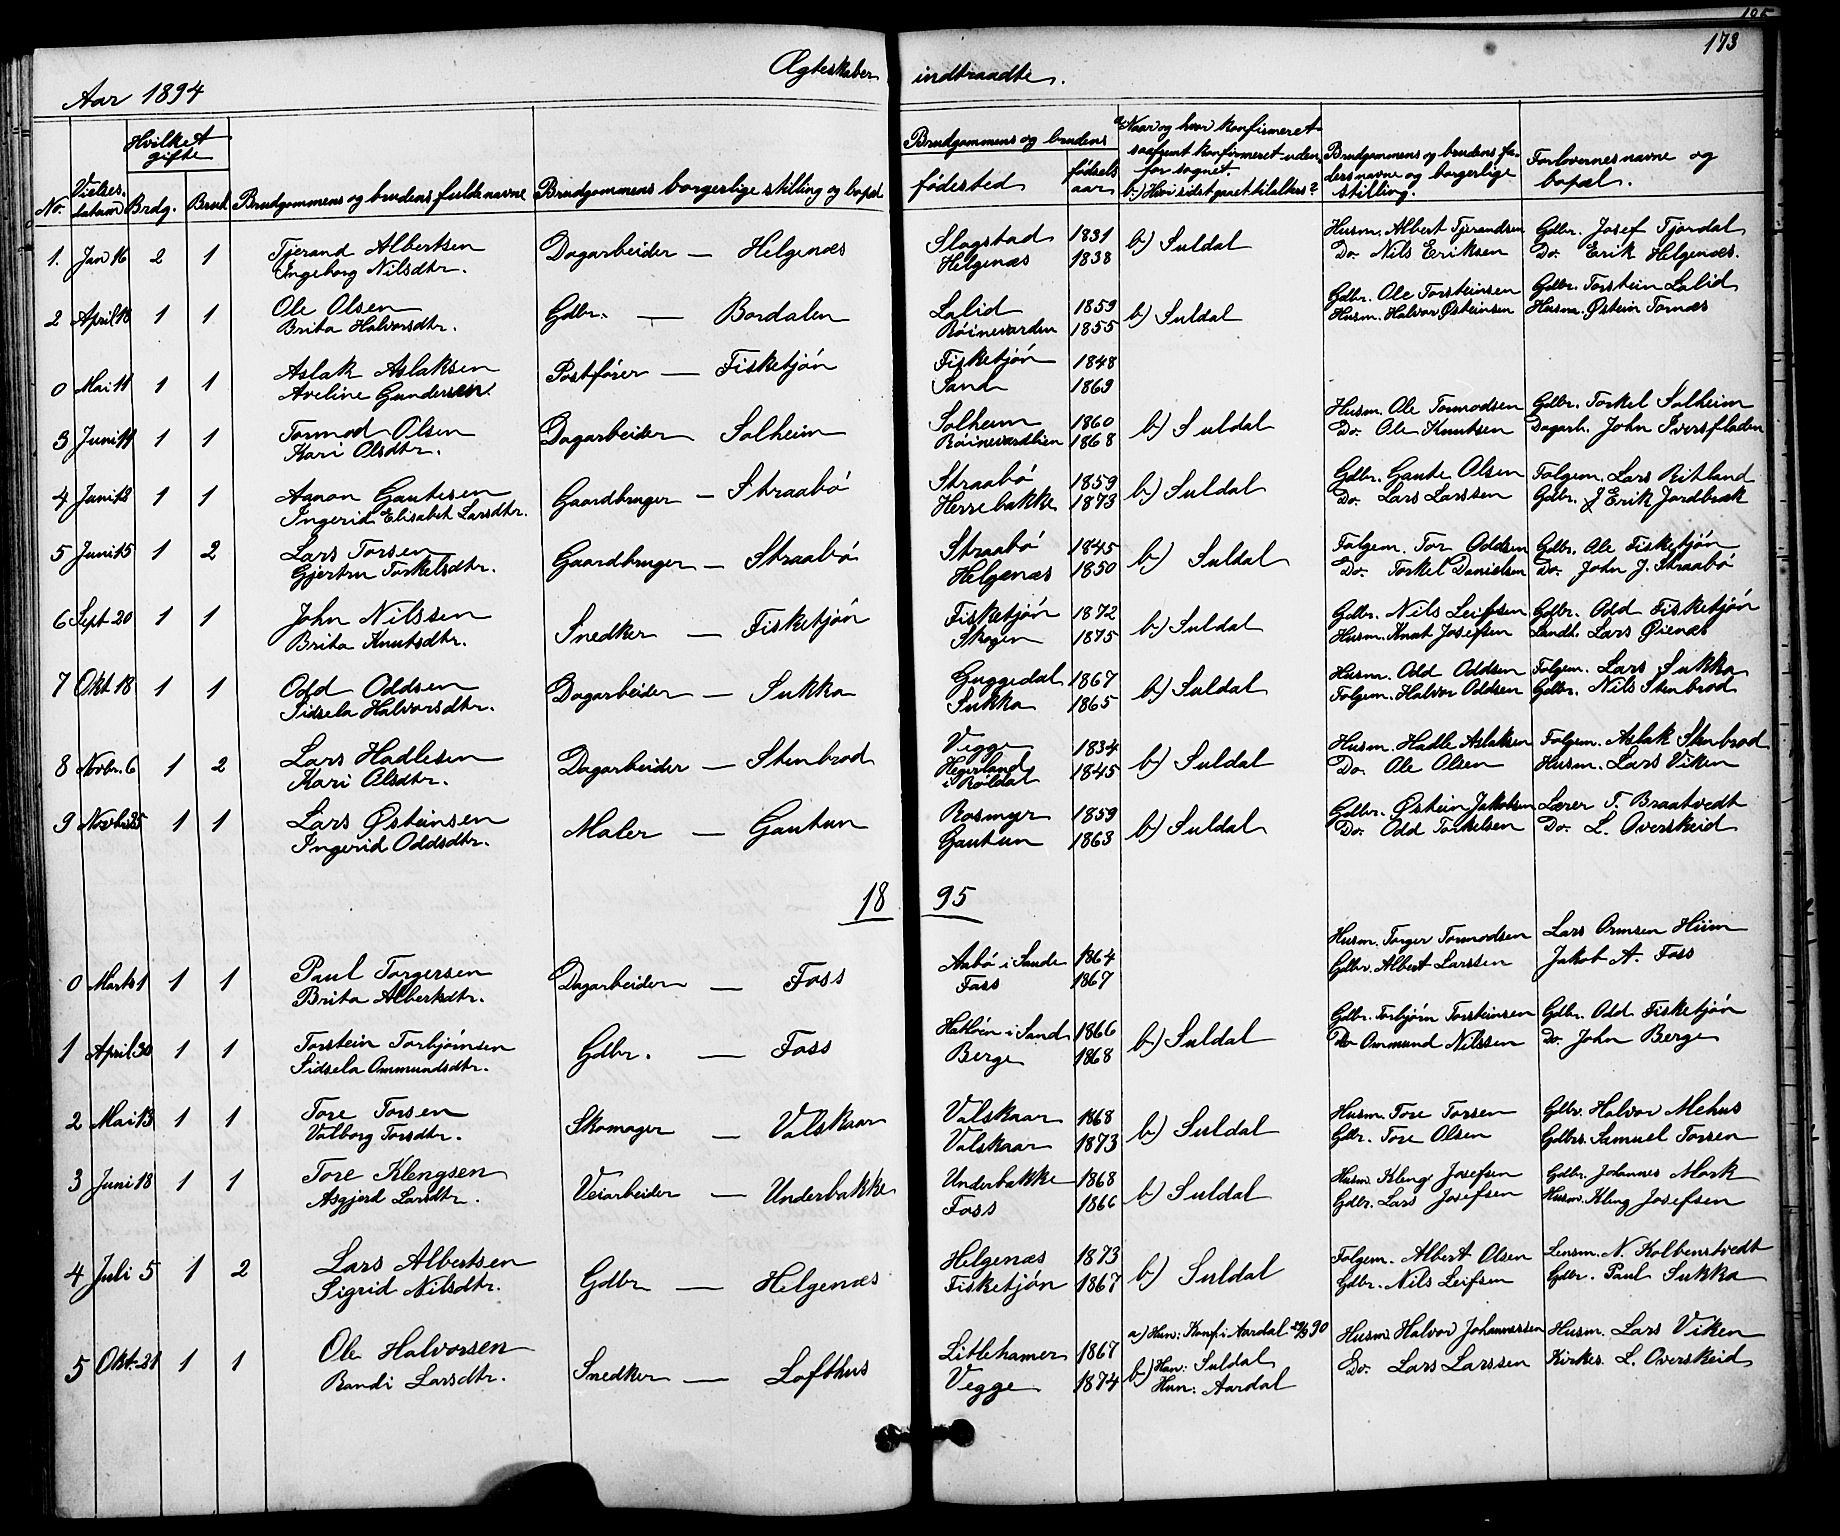 173
Ægteskaber indtraadte.
Aar 1894
No. Vielses- datum Hvilket gifte Brdg. Brud. Brudgommens og brudens fulde navne Brudgommens borgerlige stilling og bopæl Brudgommens og brudens fødested fødsels aar a) Naar og hvor konfirmeret saafremt konfirmeret uden- for sognet. b) Hvor sidst gaaet til alters? Brudgommens og brudens fa- ders navne og borgerlige stilling. Forlovernes navne og bopæl.
1. Jan 16 2 1 Tjerand Albertsen Dagarbeider — Helgenæs Slagstad 1831 b) Suldal Husm. Albert Tjerandsen Gdbr. Josef Fjordal
Ingeborg Nilsdtr. Helgenæs 1838 Do. Nils Eriksen Do. Erik Helgenæs.
2 April 18 1 1 Ole Olsen Gdbr. — Bordalen Lalid 1859 b) Suldal Gdbr. Ole Torsteinsen Gdbr. Torstein Lalid
Brita Halvorsdtr. Røinevarden 1855 Husm. Halvor Østeinsen Husm. Østein Tornæs
0 Mai 11 1 1 Aslak Aslaksen Postfører — Fisketjøn Fisketjøn 1848
Aveline Gundersen. Sand 1869
3 Juni 14 1 1 Tormod Olsen Dagarbeider — Solheim Solheim 1860 b) Suldal Husm. Ole Tormodsen Gdbr. Torkel Solheim
Kari Olsdtr. Røinevardlien 1868 Do. Ole Knutsen Dagarb. John Sversfladen
4 Juni 18 1 1 Aanon Gautesen Gaardbruger — Straabø Straabø 1859 b) Suldal Gdbr. Gaute Olsen Følgem. Lars Ritland
Ingerid Elisabet Larsdtr. Herrebakke 1873 Do. Lars Larssen Gdbr. Erik Jordbræk
5 Juni 15 1 2 Lars Torsen Gaardbruger — Straabø Straabø 1845 b) Suldal Følgem. Tor Oddsen Gdbr. Ole Fisketjøn
Gjertru Torkelsdtr. Helgenæs 1850 Do. Torkel Danielsen Do. John J. Straabø
6 Sept 20 1 1 John Nilssen Snedker — Fisketjøn Fisketjøn 1872 b) Suldal Gdbr. Nils Leifsen Gdbr. Odd Fisketjøn
Brita Knutsdtr. Skogen 1875 Husm. Knut Josefsen Landh. Lars Øienæs
7 Okt 18 1 1 Odd Oddsen Dagarbeider — Sukka Guggedal 1867 b) Suldal Husm. Odd Oddsen Følgem. Lars Sukka
Sidsela Halvorsdtr. Sukka 1865 Følgem. Halvor Oddsen Gdbr. Nils Stenbrod
8 Novbr. 6 1 2 Lars Hadlesen Dagarbeider — Stenbrod Vegge 1834 b) Suldal Husm. Hadle Aslaksen Følgem. Aslak Stenbrod
Kari Olsdtr. Hegerland i Røldal 1845 Do. Ole Olsen Husm. Lars Viken
9 Novbr. 25 1 1 Lars Østeinsen Maler — Gautun Rosmyr 1859 b) Suldal Gdbr. Østein Jakobsen Lærer T. Braatvedt
Ingerid Oddsdtr. Gautun 1863 Do. Odd Torkelsen Do. L. Overskeid
18 95
0 Marts 1 1 1 Paul Torgersen Dagarbeider — Foss Aabø i Sande 1864 Husm. Torger Tormodsen Lars Ormsen Hiim
Brita Albertsdtr. Foss 1867 Gdbr. Albert Larssen Jakob A. Foss
1 April 30 1 1 Torstein Torbjørnsen Gdbr. — Foss Hatløen i Sand 1866 b) Suldal Gdbr. Torbjørn Torsteinsen Gdbr. Odd Fisketjøn
Sidsela Ommundsdtr. Berge 1868 Do Ommund Nilssen Do. John Berge
2 Mai 13 1 1 Tore Torsen Skomager — Valskaar Valskaar 1868 b) Suldal Husm. Tore Torsen Gdbr. Halvor Mehus
Valborg Torsdtr. Valskaar 1873 Gdbr. Tore Olsen Gdbrs. Samuel Torsen
3 Juni 18 1 1 Tore Klengsen Veiarbeider — Underbakke Underbakke 1868 b) Suldal Husm. Kleng Josefsen Gdbr. Johannes Mork
Asgjerd Larsdtr. Foss 1866 Gdbr. Lars Josefsen Husm. Kleng Josefsen
4 Juli 5 1 2 Lars Albertsen Gdbr — Helgenæs Helgenæs 1873 b) Suldal Følgem. Albert Olsen Lensm. N. Kolbenstvedt
Sigrid Nilsdtr. Fisketjøn 1867 Gdbr. Nils Leifsen Gdbr. Paul Sukka
5 Okt. 21 1 1 Ole Halvorsen Snedker — Lofthus Litlehamer 1867 a) Hun: Konf. i Aardal 28/9 90 Husm. Halvor Johannessen Husm. Lars Viken
Randi Larsdtr. Vegge 1874 b) Han: Suldal Hun: Aardal Do. Lars Larssen Kirkes. L. Overskeid